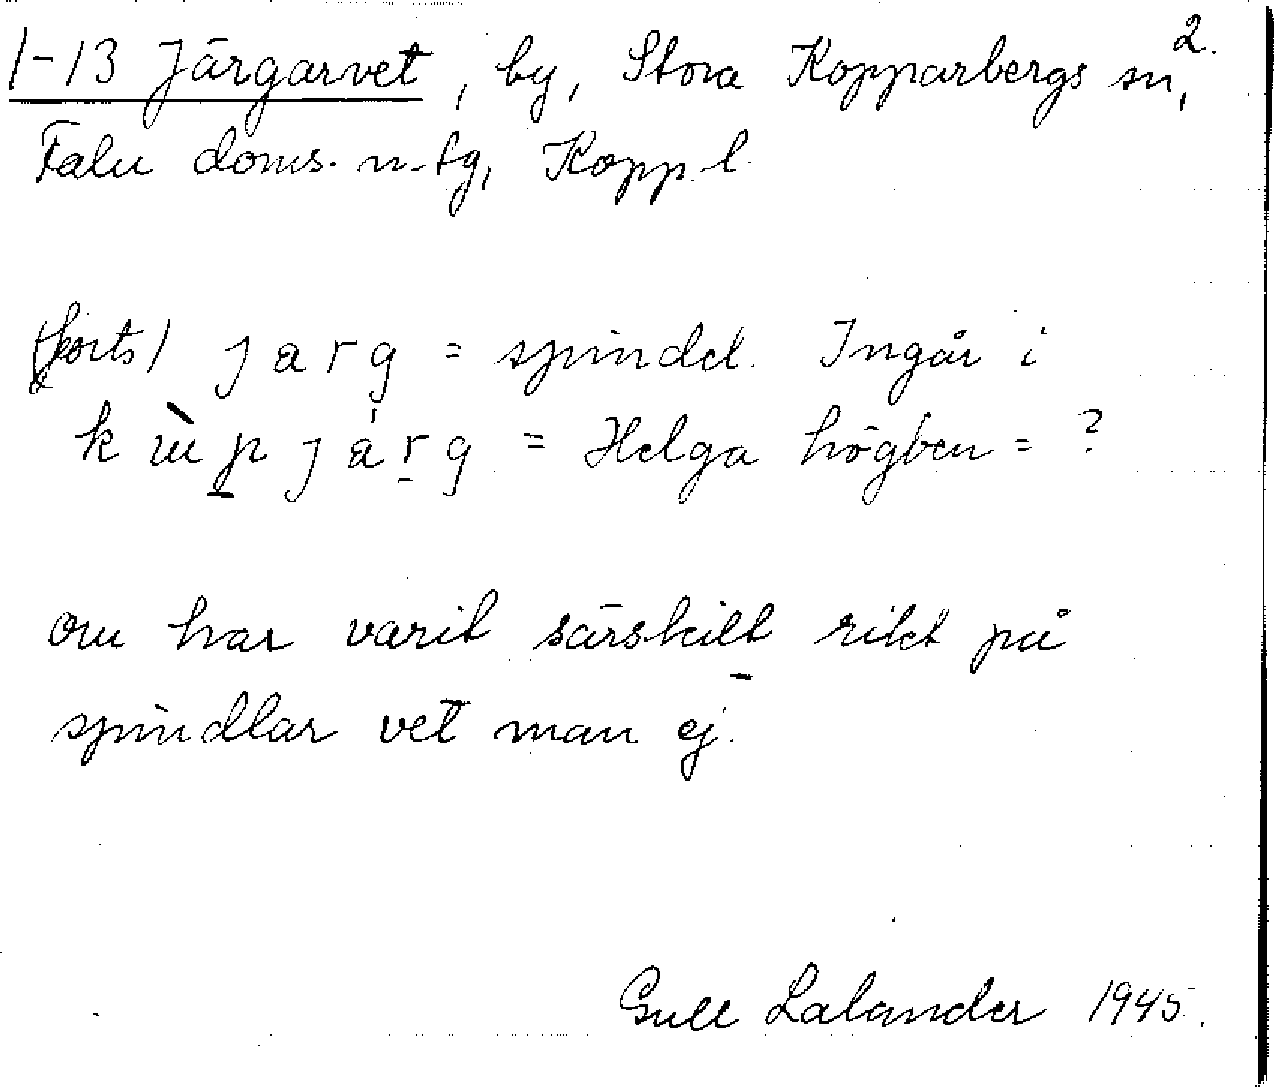 2.
1-13 Järgarvet, by, Stora Kopparbergs sn,
Falu doms. n. tg, Kopp. l.
(forts) jarg = spindel. Ingår i
járg = Helga högben = ?
om har varit särskilt rikt på
spindlar vet man ej.
Gull Lalander 1945.